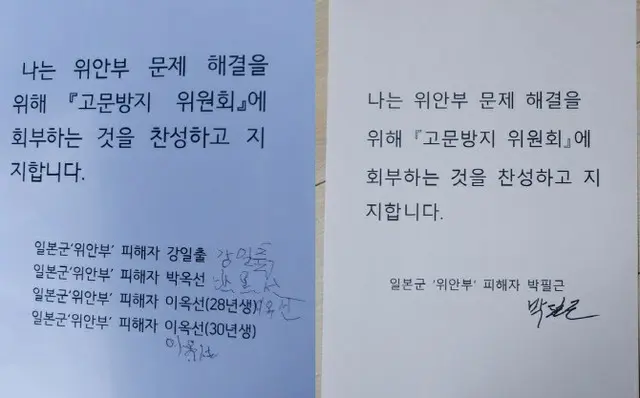 나는 위안부 문제 해결을
위해 『고문방지 위원회』에
회부하는 것을 찬성하고 지
지합니다.
일본군'위안부' 피해자 강일출 강일출
일본군'위안부' 피해자 박옥선 박옥선
일본군'위안부' 피해자 이옥선(28년생) 이옥선
일본군'위안부' 피해자 이옥선(30년생)
이옥선
나는 위안부 문제 해결을
위해 『고문방지 위원회』에
회부하는 것을 찬성하고 지
지합니다.
일본군 '위안부' 피해자 박필근
박필근